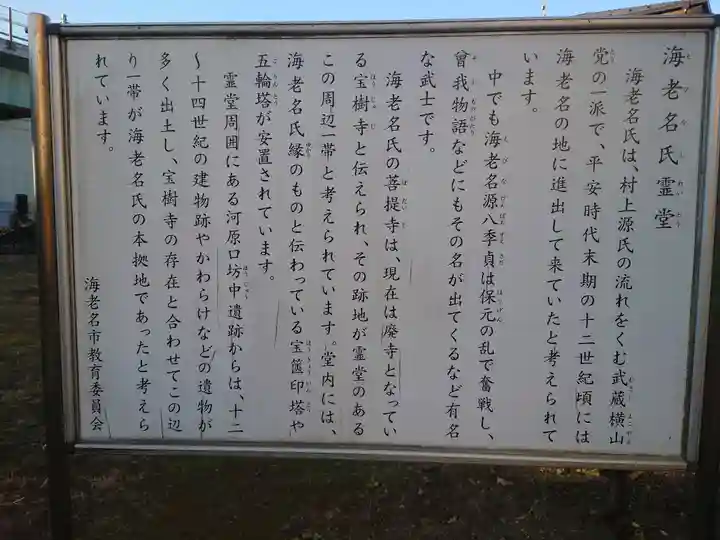 海老名氏霊堂
海老名氏は、村上源氏の流れをくむ武蔵横山
党の一派で、平安時代末期の十二世紀頃には
海老名の地に進出して来ていたと考えられて
います。
中でも海老名源八季貞は保元の乱で奮戦し、
曾我物語などにもその名が出てくるなど有名
な武士です。
海老名氏の菩提寺は、現在は廃寺となってい
る宝樹寺と伝えられ、その跡地が霊堂のある
この周辺一帯と考えられています。堂内には、
海老名氏縁のものと伝わっている宝篋印塔や
五輪塔が安置されています。
霊堂周囲にある河原口坊中遺跡からは、十二
〜十四世紀の建物跡やかわらけなどの遺物が
多く出土し、宝樹寺の存在と合わせてこの辺
り一帯が海老名氏の本拠地であったと考えら
れています。
海老名市教育委員会